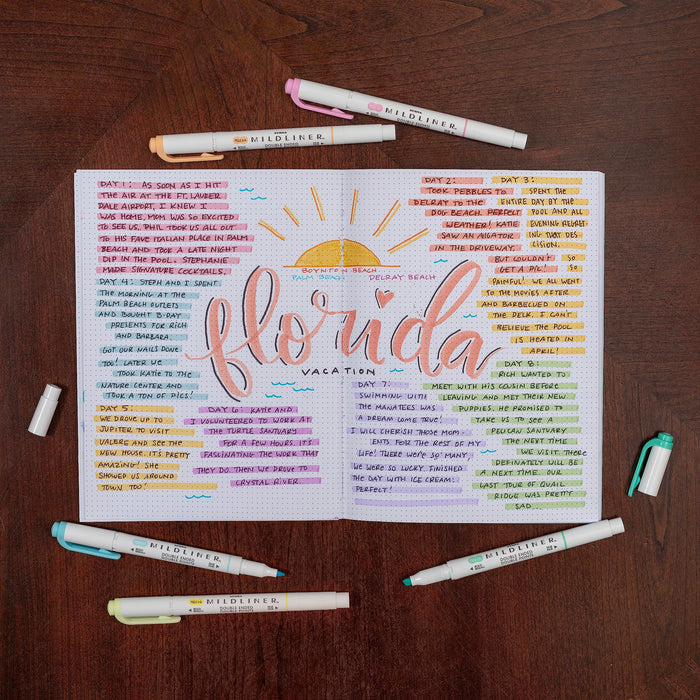 MILDLINER
DOUBLE ENDED
ZEBRA
MILDLINER
DOUBLE ENDED
DAY 1: AS SOON AS I HIT
THE AIR AT THE FT. LAUDER
DALE AIRPORT, I KNEW I
WAS HOME. MOM WAS SO EXCITED
TO SEE US. PHIL TOOK US ALL OUT
TO HIS FAVE ITALIAN PLACE IN PALM
BEACH AND TOOK A LATE NIGHT
DIP IN THE POOL. STEPHANIE
MADE SIGNATURE COCKTAILS.
DAY 2:
TOOK PEBBLES TO
DELRAY TO THE
DOG BEACH. PERFECT
WEATHER! KATIE
SAW AN ALIGATOR
IN THE DRIVEWAY,
BUT COULDN'T
GET A PIC!
DAY 3:
SPENT THE
ENTIRE DAY BY THE
POOL AND ALL
EVENING REGRET-
ING THAT DES-
CISION.
SO
SO
PAINFUL! WE ALL WENT
TO THE MOVIES AFTER
AND BARBECUED ON
THE DECK. I CAN'T
BELIEVE THE POOL
IS HEATED IN
APRIL!
BOYNTON BEACH
PALM BEACH
DELRAY BEACH
florida
VACATION
DAY 4: STEPH AND I SPENT
THE MORNING AT THE
PALM BEACH OUTLETS
AND BOUGHT B-DAY
PRESENTS FOR RICH
AND BARBARA.
GOT OUR NAILS DONE
TOO! LATER WE
TOOK KATIE TO THE
NATURE CENTER AND
TOOK A TON OF PICS!
DAY 5:
WE DROVE UP TO
JUPITER TO VISIT
VALERIE AND SEE THE
NEW HOUSE. IT'S PRETTY
AMAZING! SHE
SHOWED US AROUND
TOWN TOO!
DAY 6: KATIE AND
I VOLUNTEERED TO WORK AT
THE TURTLE SANTUARY
FOR A FEW HOURS. IT'S
FASCINATING THE WORK THAT
THEY DO. THEN WE DROVE TO
CRYSTAL RIVER.
DAY 7:
SWIMMING WITH
THE MANATEES WAS
A DREAM COME TRUE!
I WILL CHERISH THOSE MOM-
ENTS FOR THE REST OF MY
LIFE! THERE WERE SO MANY,
WE WERE SO LUCKY. FINISHED
THE DAY WITH ICE CREAM.
PERFECT!
DAY 8:
RICH WANTED TO
MEET WITH HIS COUSIN BEFORE
LEAVING AND MET THEIR NEW
PUPPIES. HE PROMISED TO
TAKE US TO SEE A
PELICAN SANTUARY
THE NEXT TIME
WE VISIT. THERE
DEFINATELY WILL BE
A NEXT TIME. OUR
LAST TOUR OF QUAIL
RIDGE WAS PRETTY
SAD...
MILDLINER
DOUBLE ENDED
MILDLINER
DOUBLE ENDED
MILDLINER
DOUBLE ENDED